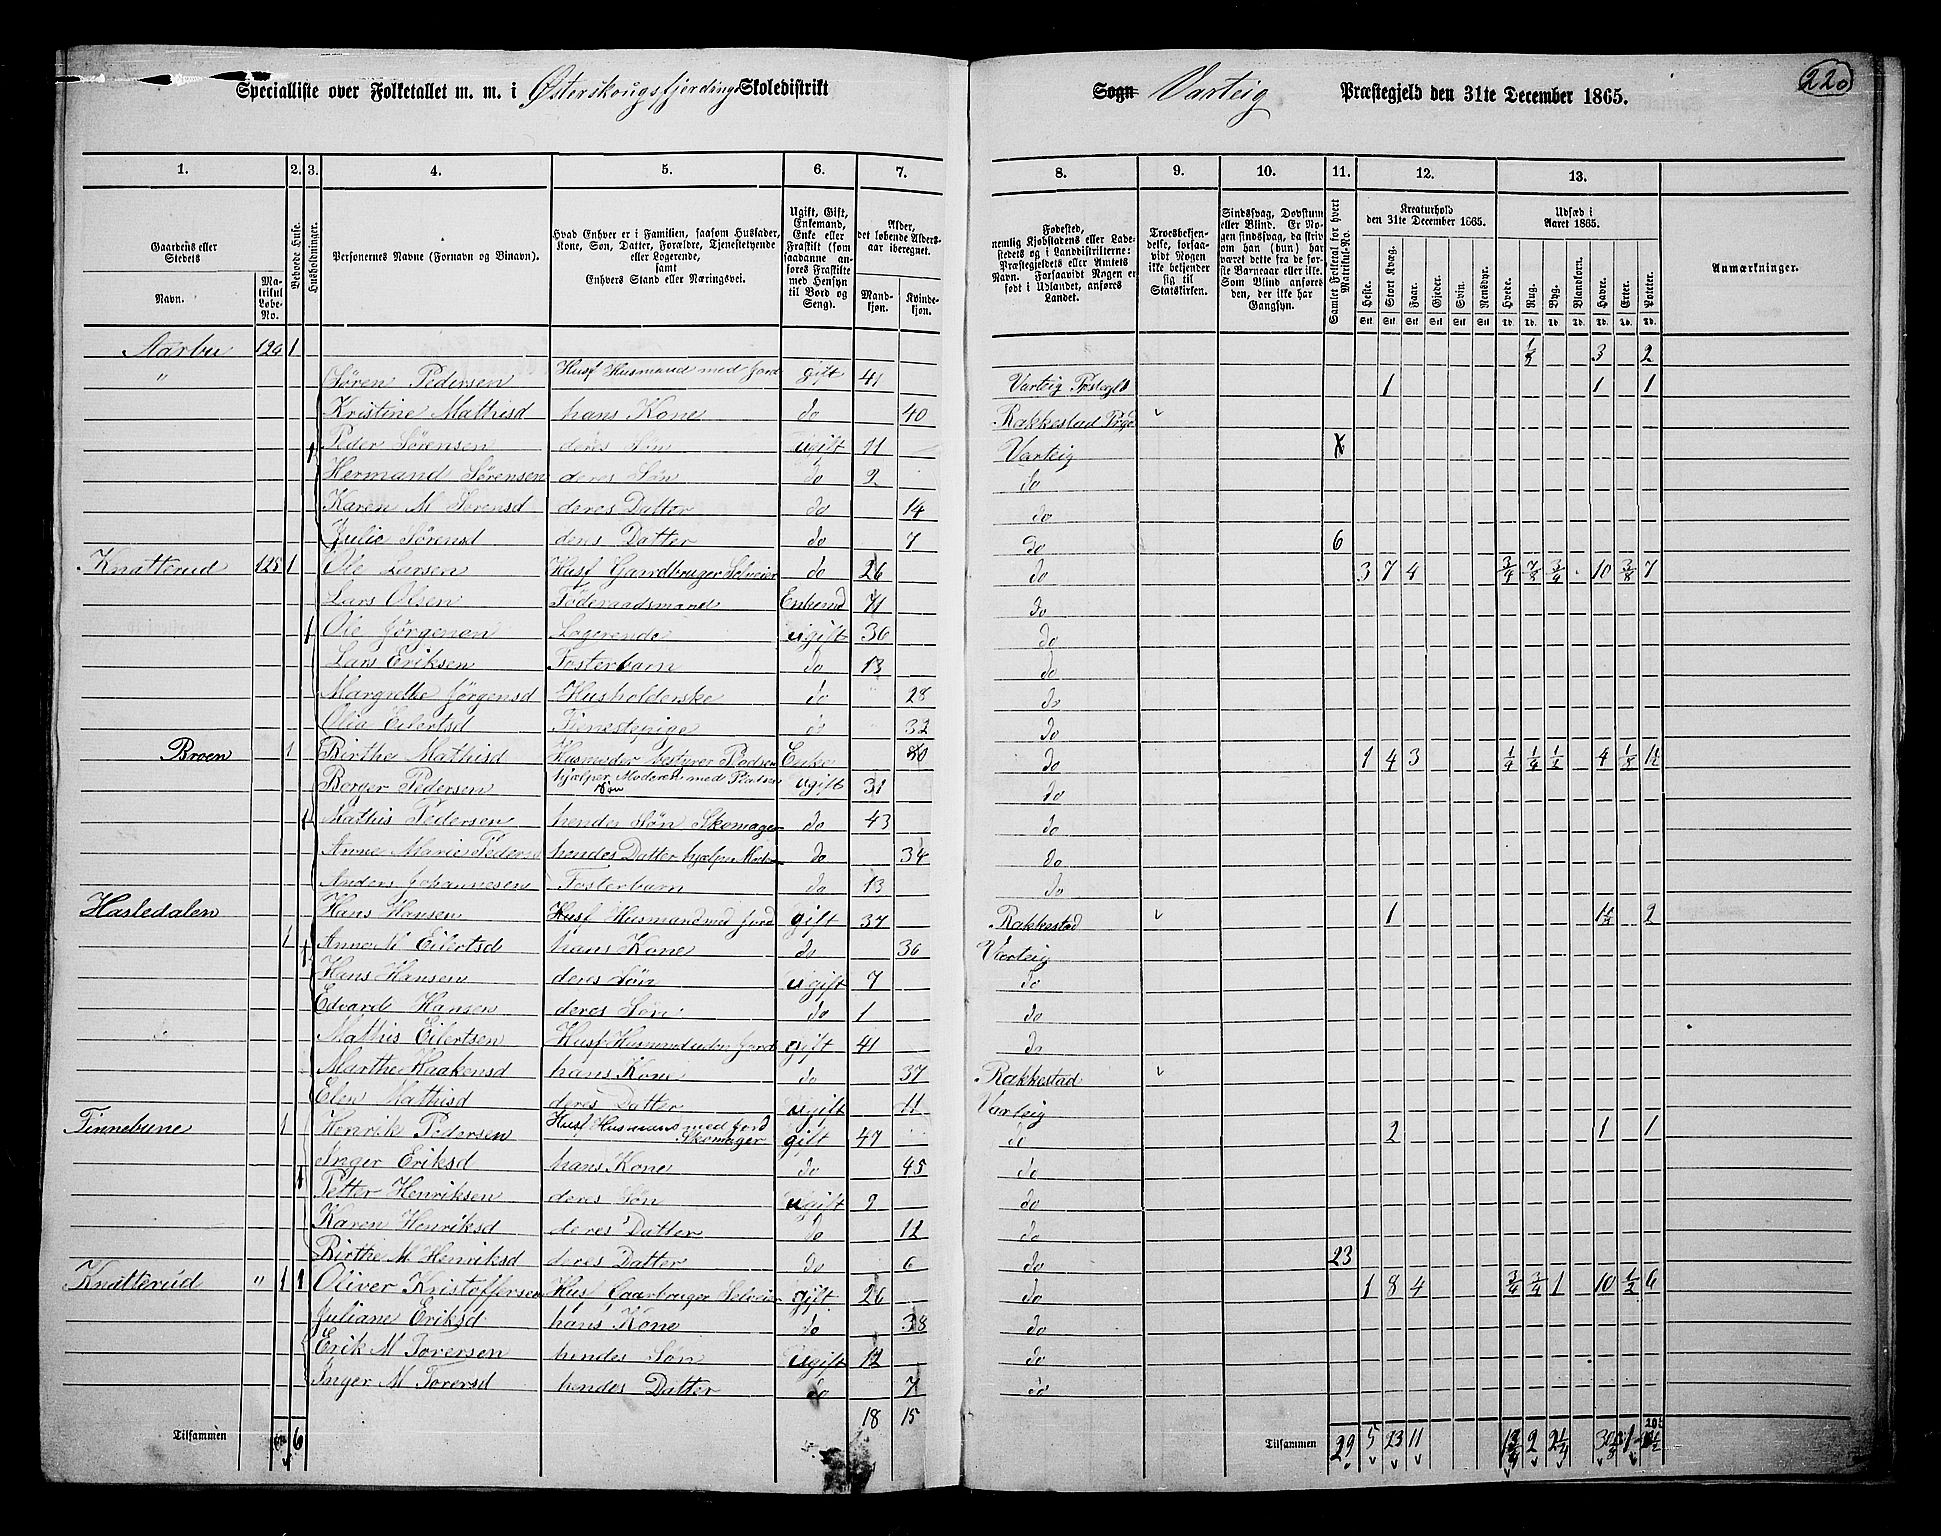 220
Specialliste over Folketallet m. m. i Østerskougsfjerding Skoledistrikt
Sogn Varteig Præstegjeld den 31te December 1865.
1. 2. 3. 4. 5. 6. 7. 8. 9. 10. 11. 12. 13.
Gaardens eller Stedets
Navn.
Matrikul Løbe-No.
Beboede Huse.
Husholdninger.
Personernes Navne (Fornavn og Binavn).
Hvad Enhver er i Familien, saasom Husfader, Kone, Søn, Datter, Forældre, Tjenestetyende eller Logerende,
samt
Enhvers Stand eller Næringsvei.
Ugift, Gift, Enkemand, Enke eller Fraskilt (som saadanne anføres Fraskilte med Hensyn til Bord og Seng).
Alder, det løbende Aldersaar iberegnet.
Mandkjøn.
Kvindekjøn.
Fødested,
nemlig Kjøbstadens eller Ladestedets og i Landdistrikterne: Præstegjeldets eller Amtets Navn. Forsaavidt Nogen er født i Udlandet, anføres Landet.
Troesbekjendelse, forsaavidt Nogen ikke bekjender sig til Statskirken.
Sindssvag, Døvstum eller Blind. Er Nogen sindssvag, da skriv om han (hun) har været dette fra de første Barneaar eller ikke. Som Blind anføres den, der ikke har Gangsyn.
Samlet Folketal for hvert Matrikul-No.
Kreaturhold den 31te December 1865.
Heste. Stort Kvæg. Faar. Gjeder. Svin. Rensdyr.
Stk. Stk. Stk. Stk. Stk. Stk.
Udsæd i Aaret 1865.
Hvede. Rug. Byg. Blandkorn. Havre. Erter. Poteter.
Td. Td. Td. Td. Td. Td. Td.
Anmærkninger.
Aarbu 124 1 1/8 3 2
" Søren Pedersen Husf Husmand med Jord gift 41 Varteig Præstegjld 1 1 1
Kristine Mathisd hans Kone do 40 Rakkestad Prgd
1 Peder Sørensen deres Søn ugift 11 Varteig
Hermand Sørensen deres Søn do 2 do
Karen M Sørensd deres Datter do 14 do
Julie Sørensd deres Datter do 7 do 6
Knatterud 125 1 Ole Larsen Husf Gaardbruger Selveier do 26 do 3 7 4 3/4 7/8 3/4 10 3/8 7
Lars Olsen Føderaadsmand Enkemd 71 do
1 Ole Jørgensen Logerende ugift 36 do
Lars Eriksen Fosterbarn do 13 do
Margrethe Jørgensd Husholderske do 28 do
Olia Eilertsd Tjenestepige do 32 do
Broen 1 Birthe Mathisd Husmoder bestyrer Pladsen Enke do 1 4 3 1/4 1/4 1/2 4 1/8 1 1/2
Borger Pedersen hjælper Moderen med Pladsen Søn ugift 31 do
1 Mathis Pedersen hendes Søn Skomager do 43 do
Anne Marie Pedersd hendes Datter hjælper Moder do 34 do
Anders Johannesen Fosterbarn do 13 do
Hasledalen Hans Hansen Husf Husmand med Jord gift 37 Rakkestad 1 1 1/4 2
1 1 Anne M Eilertsd hans Kone do 36 Varteig
Hans Hansen deres Søn ugift 7 do
Edvard Hansen deres Søn do 1 do
Mathis Eilertsen Husf Husmand uden Jord gift 41 do
Marthe Haakensd hans Kone do 37 Rakkestad
Elen Mathisd deres Datter ugift 11 Varteig
Finnebune 1 Henrik Pedersen Husf Husmand med Jord Skomager gift 47 do 2 1 1
Inger Eriksd hans Kone do 45 do
1 Petter Henriksen deres Søn ugift 2 do
Karen Henriksd deres Datter do 12 do
Birthe M Henriksd deres Datter do 6 do 23
Knatterud " 1 1 Oliver Kristoffersen Husf Gaardbruger Selveier gift 26 do 1 8 4 3/4 3/4 1 10 1/2 6
Juliane Eriksd hans Kone do 38 do
Erik M Torersen hendes Søn ugift 12 do
Inger M Torersd hendes Datter do 7 do
18 15
Tilsammen 6
Tilsammen 29 5 23 11 1 3/4 2 2 1/4